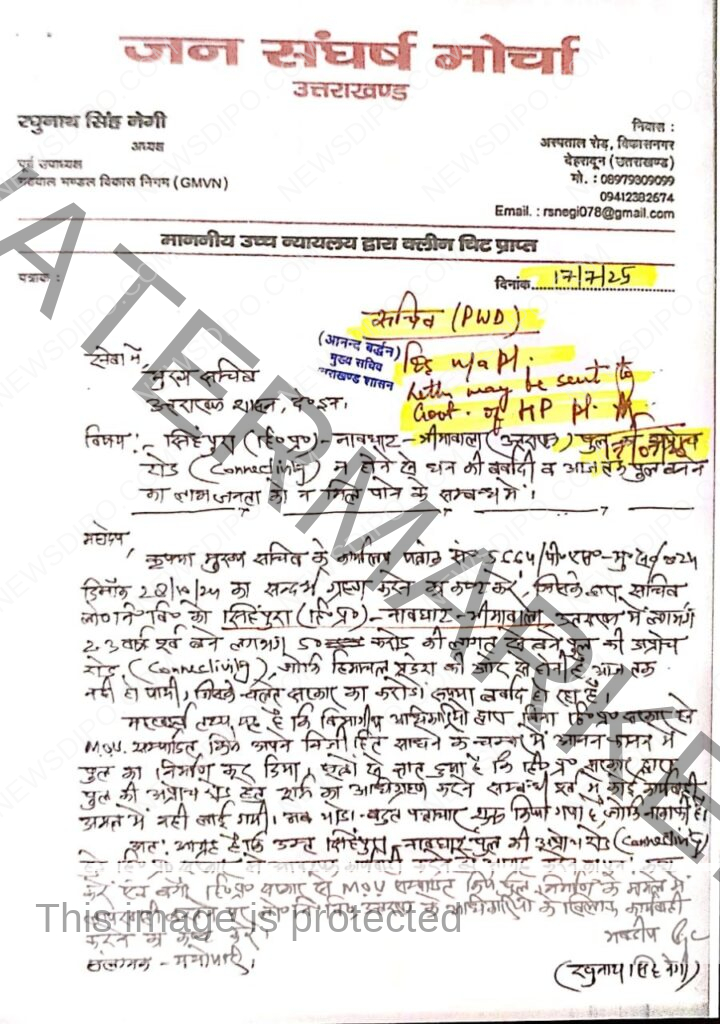 जन संघर्ष मोर्चा
उत्तराखण्ड
रघुनाथ सिंह नेगी
अध्यक्ष
पूर्व उपाध्यक्ष
गढवाल मण्डल विकास निगम (GMVN)
निवास :
अस्पताल रोड, विकासनगर
देहरादून (उत्तराखण्ड)
मो. : 08979309099
09412382674
Email. : rsnegi078@gmail.com
माननीय उच्च न्यायलय द्वारा क्लीन चिट प्राप्त
पत्रांक :
दिनांक 17/7/25
सचिव (PWD)
(आनन्द बर्द्धन)
मुख्य सचिव
उत्तराखण्ड शासन
n/a pl.
letter may be sent to
Govt. of HP pl.
सेवा में,
मुख्य सचिव
उत्तराखण्ड शासन, दे०दून।
विषय:- सिंहपुरा (हि०प्र०)-नावघाट-भीमावाला (उत्तराखण्ड) पुल की अप्रोच
रोड (Connectivity) न होने से धन की बर्बादी व आज तक पुल बनने
का लाभ जनता को न मिल पाने के सम्बन्ध में।
महोदय,
कृपया मुख्य सचिव के कार्यालय पत्रांक सं०
दिनाँक 28/10/24 का सन्दर्भ ग्रहण करने का कष्ट करें, जिसके द्वारा सचिव
लो०नि०वि० को सिंहपुरा (हि०प्र०)-नावघाट-भीमावाला, उत्तराखण्ड में लगभग
2-3 वर्ष पूर्व बने लगभग 50 करोड़ की लागत से बने पुल की अप्रोच
रोड (Connectivity), जोकि हिमाचल प्रदेश की ओर से होनी है, आज तक
नहीं हो पायी, जिसके चलते सरकार का करोड़ों रुपया बर्बाद हो रहा है।
महत्वपूर्ण तथ्य यह है कि विभागीय अधिकारियों द्वारा बिना हि०प्र० सरकार से
M.O.U. सम्पादित किये अपने निजी हित साधने के चक्कर में आनन फानन में
पुल का निर्माण कर दिया। सूत्रों से ज्ञात हुआ है कि हि०प्र० सरकार द्वारा
पुल की अप्रोच रोड हेतु भूमि का अधिग्रहण करने सम्बन्धी में कोई कार्यवाही
अमल में नहीं लाई गयी। अब थोड़ा-बहुत पत्राचार शुरू किया गया है, जोकि नाकाफी है।
अतः आग्रह है कि उक्त सिंहपुरा-नावघाट पुल की अप्रोच रोड (Connectivity)
करें एवं बगैर हि०प्र० सरकार से M.O.U सम्पादित किये पुल निर्माण के मामले में
के अधिकारियों के खिलाफ कार्यवाही
करने का कष्ट करें।
संलग्नक - यथोपरि।
भवदीय
(रघुनाथ सिंह नेगी)
WATERMARKED
This image is protected
NEWSDIPO.COM